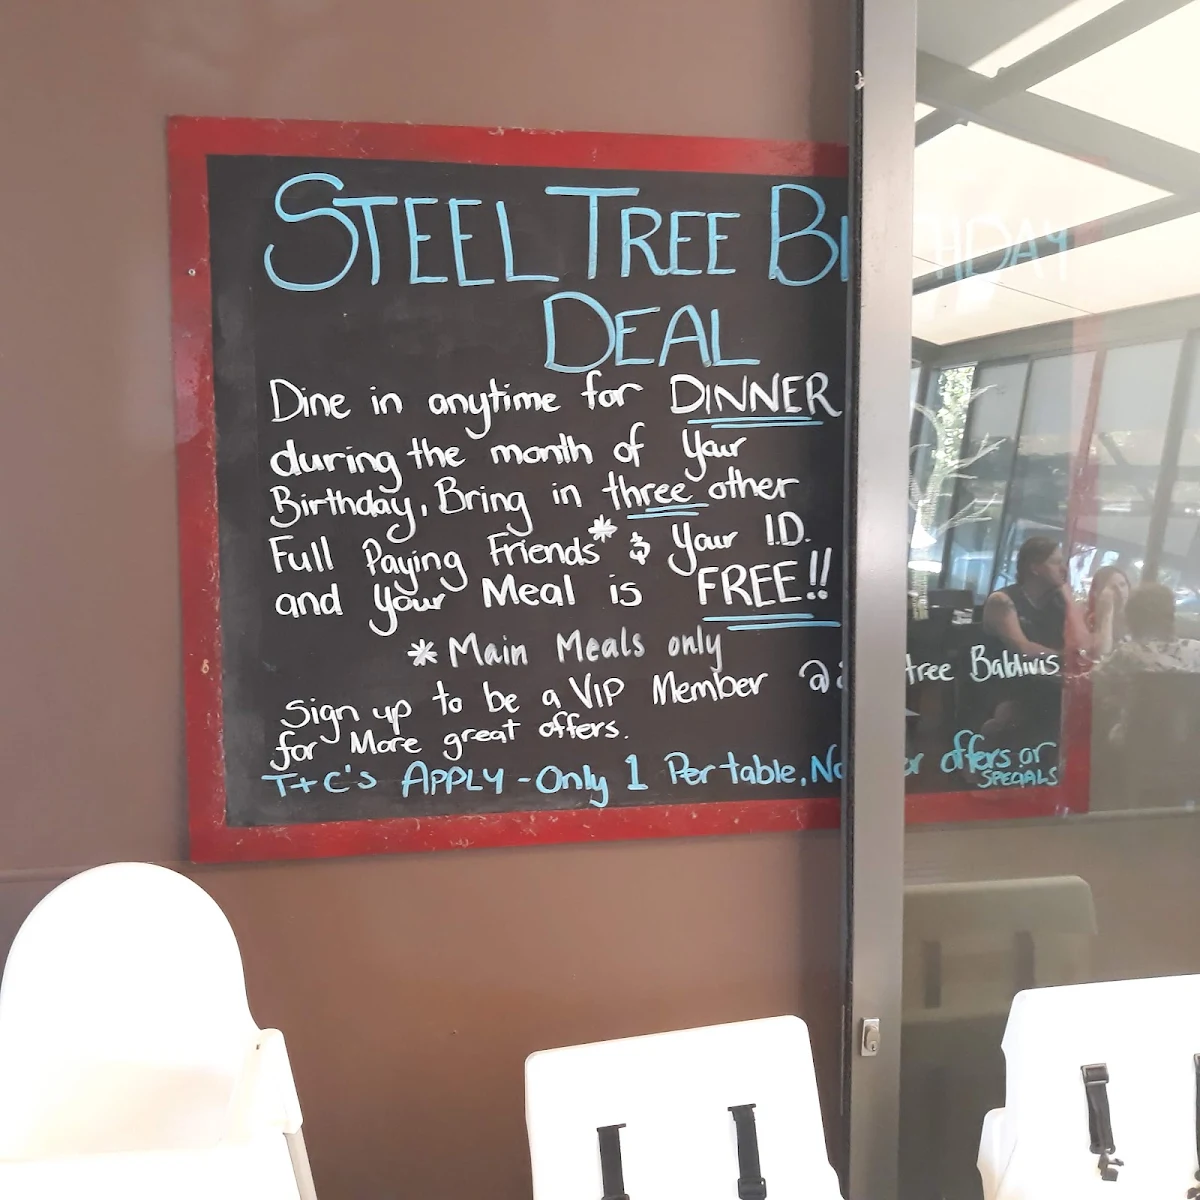 STEEL TREE BI HDAY
DEAL
Dine in anytime for DINNER
during the month of your
Birthday, Bring in three other
Full Paying Friends* & Your I.D.
and your Meal is FREE!!
* Main Meals only
Sign up to be a VIP Member @ tree Baldivis
for More great offers.
T+C's APPLY - Only 1 Per table, No er offers or
SPECIALS